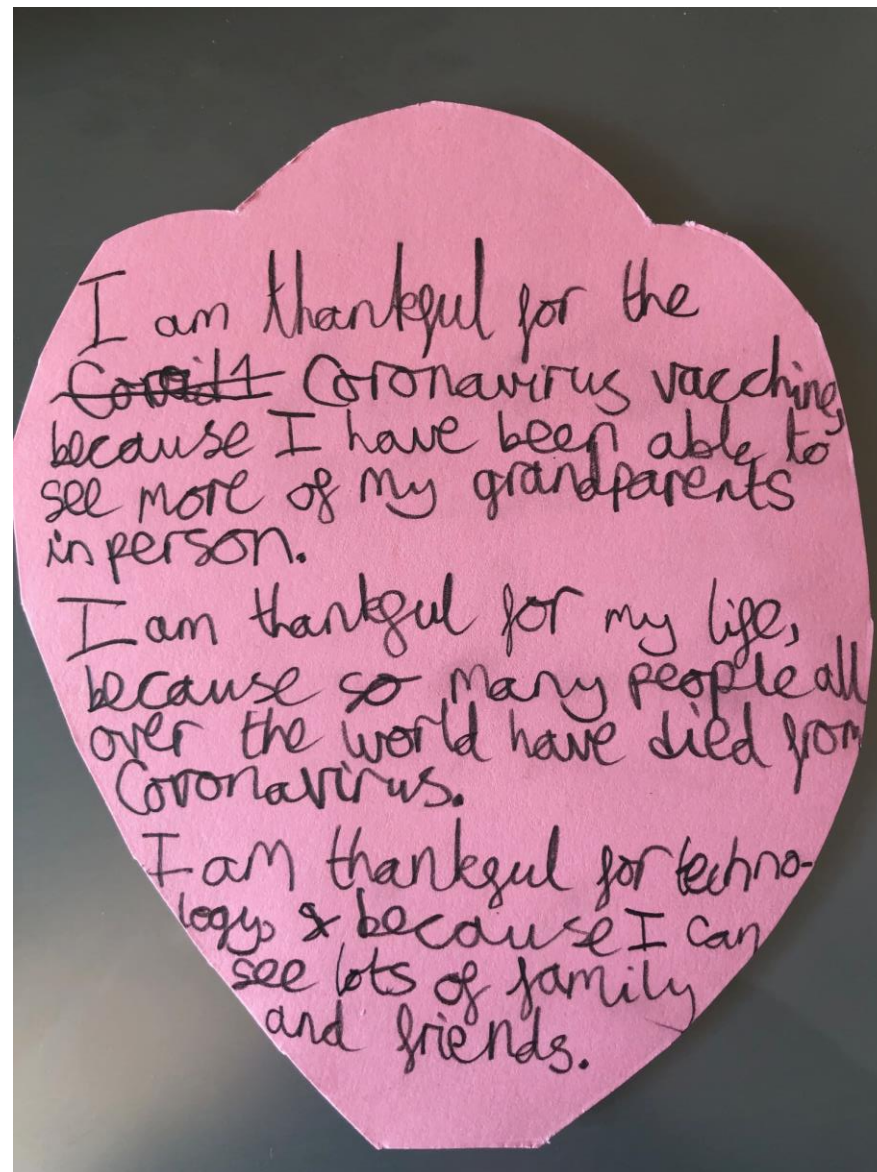 I am thankful for the
Covid1 Coronavirus vacchine,
because I have been able to
see more of my grandparents
in person.
I am thankful for my life,
because so many people all
over the world have died from
Coronavirus.
I am thankful for techno-
logy, & because I can
see lots of family
and friends.